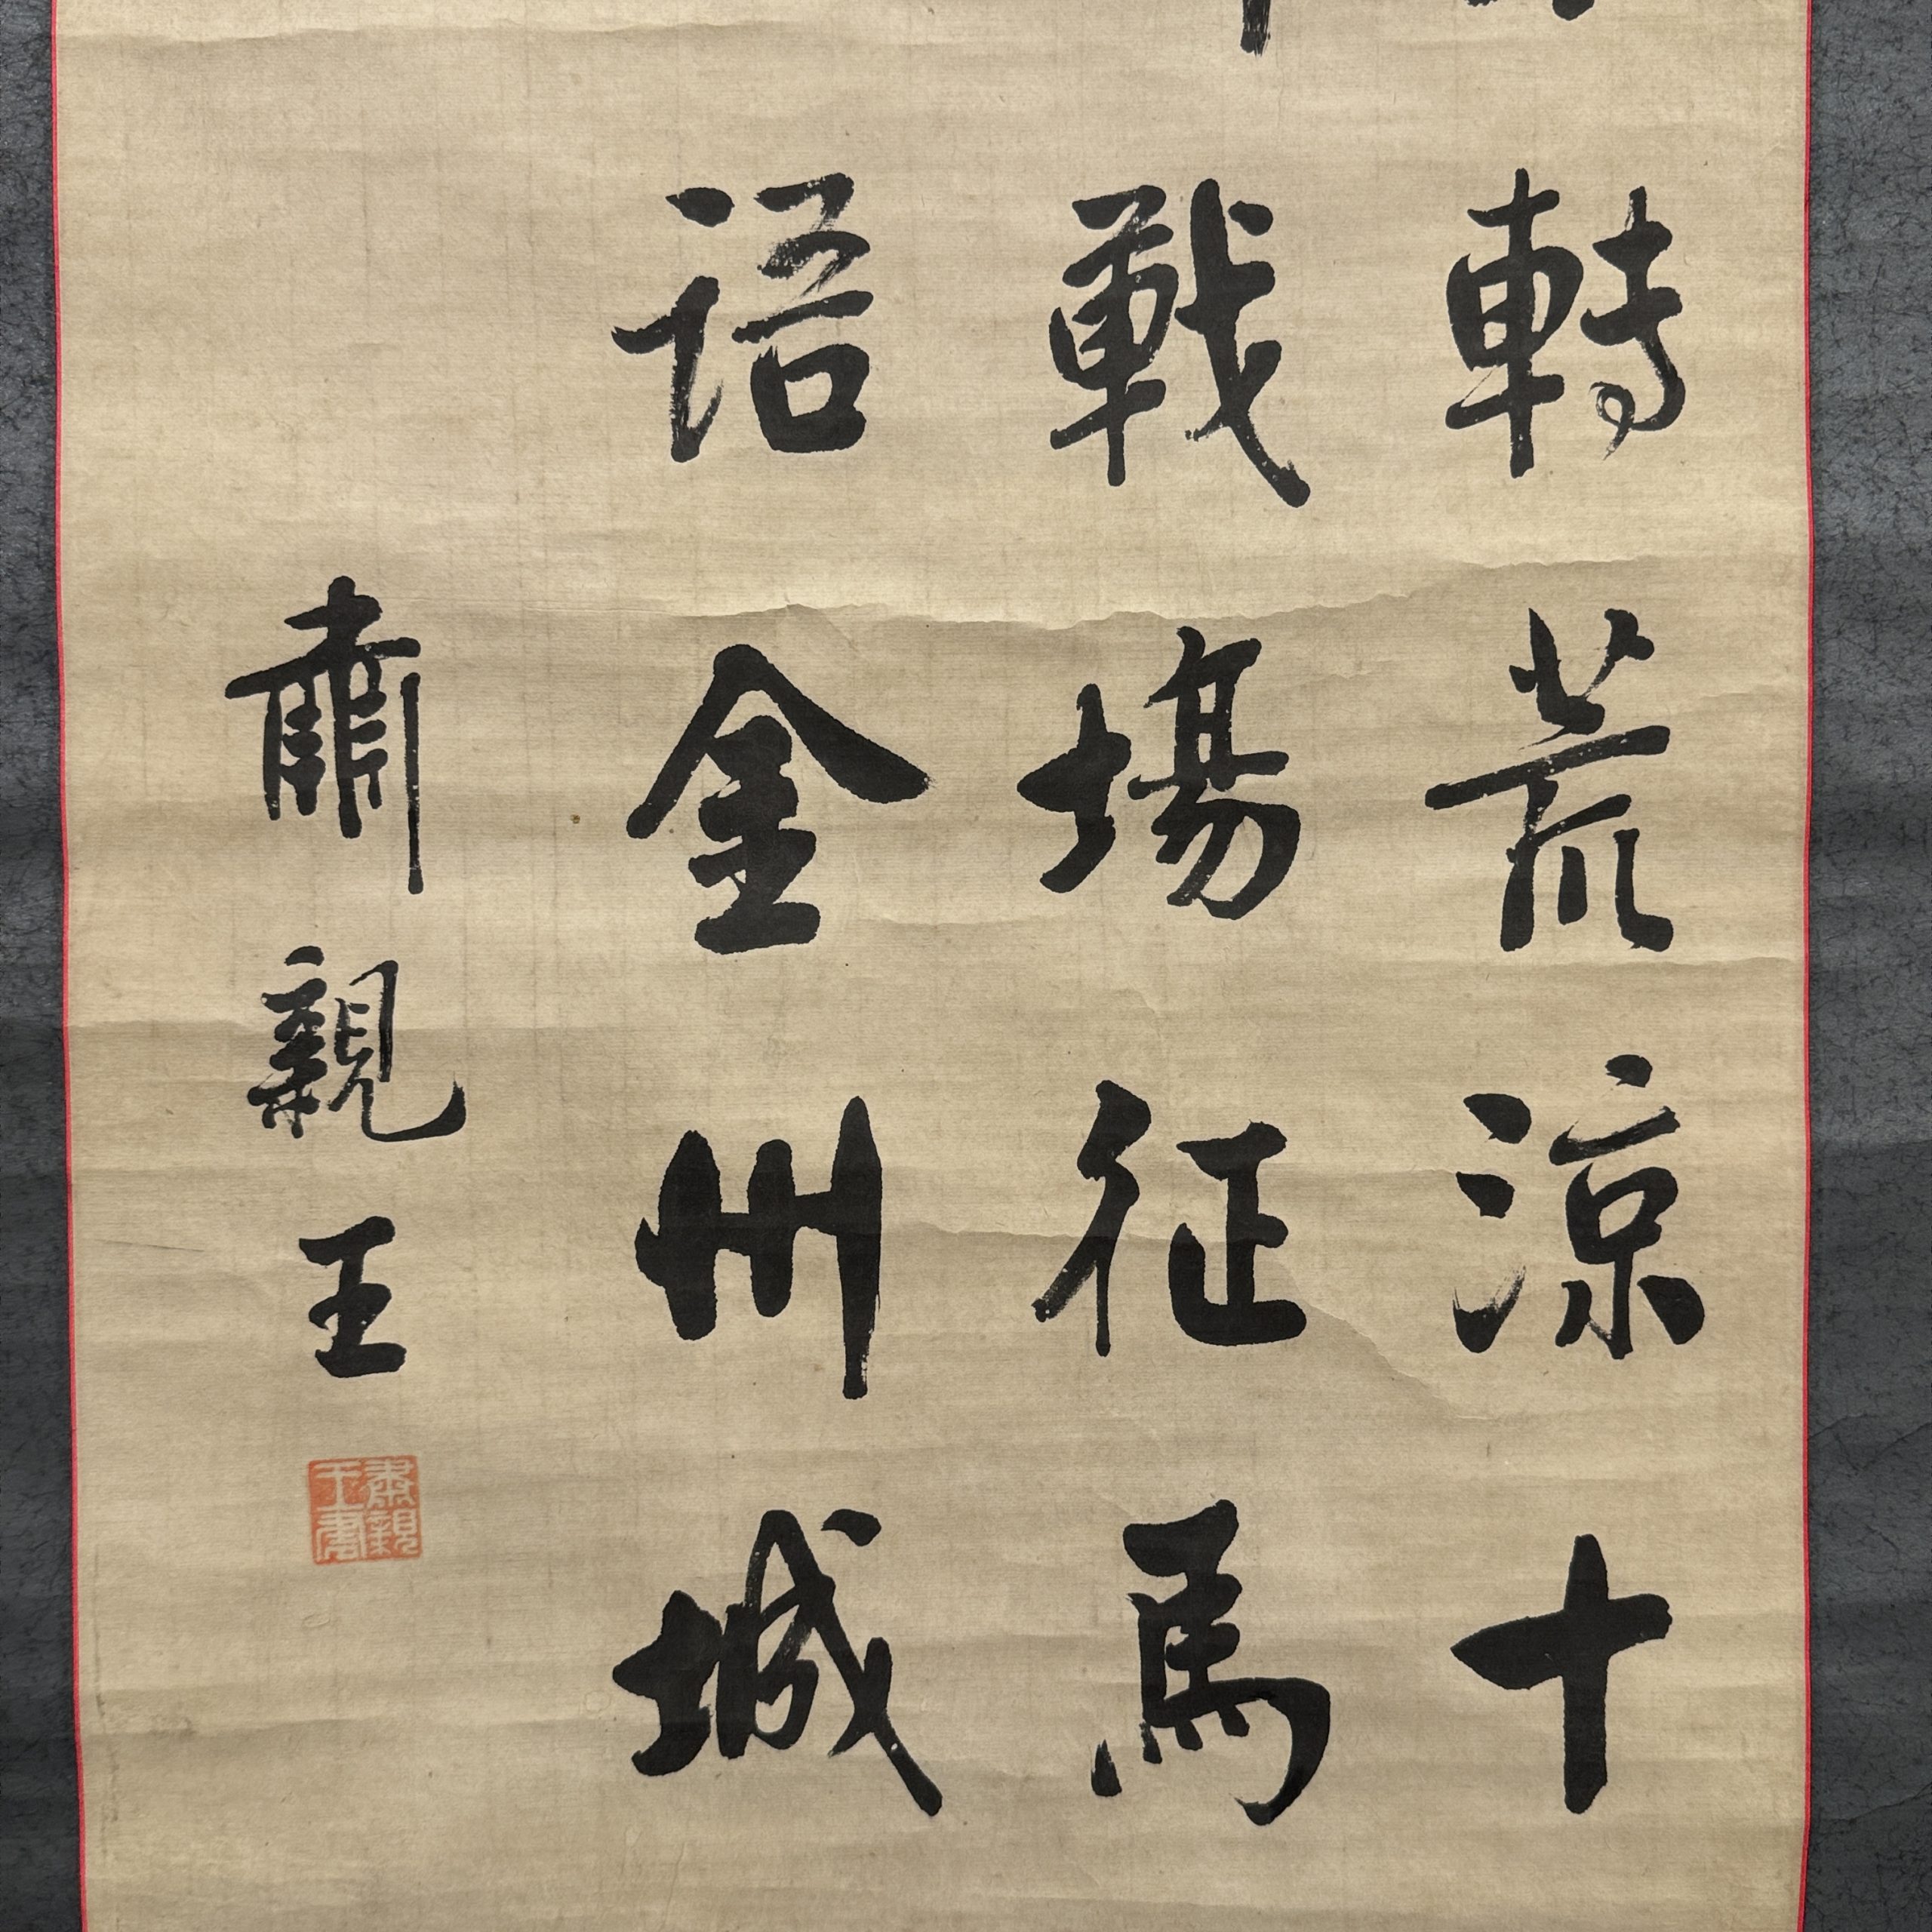 轉荒涼十
戰場征馬
語金州城
肅親王
肅親
王書